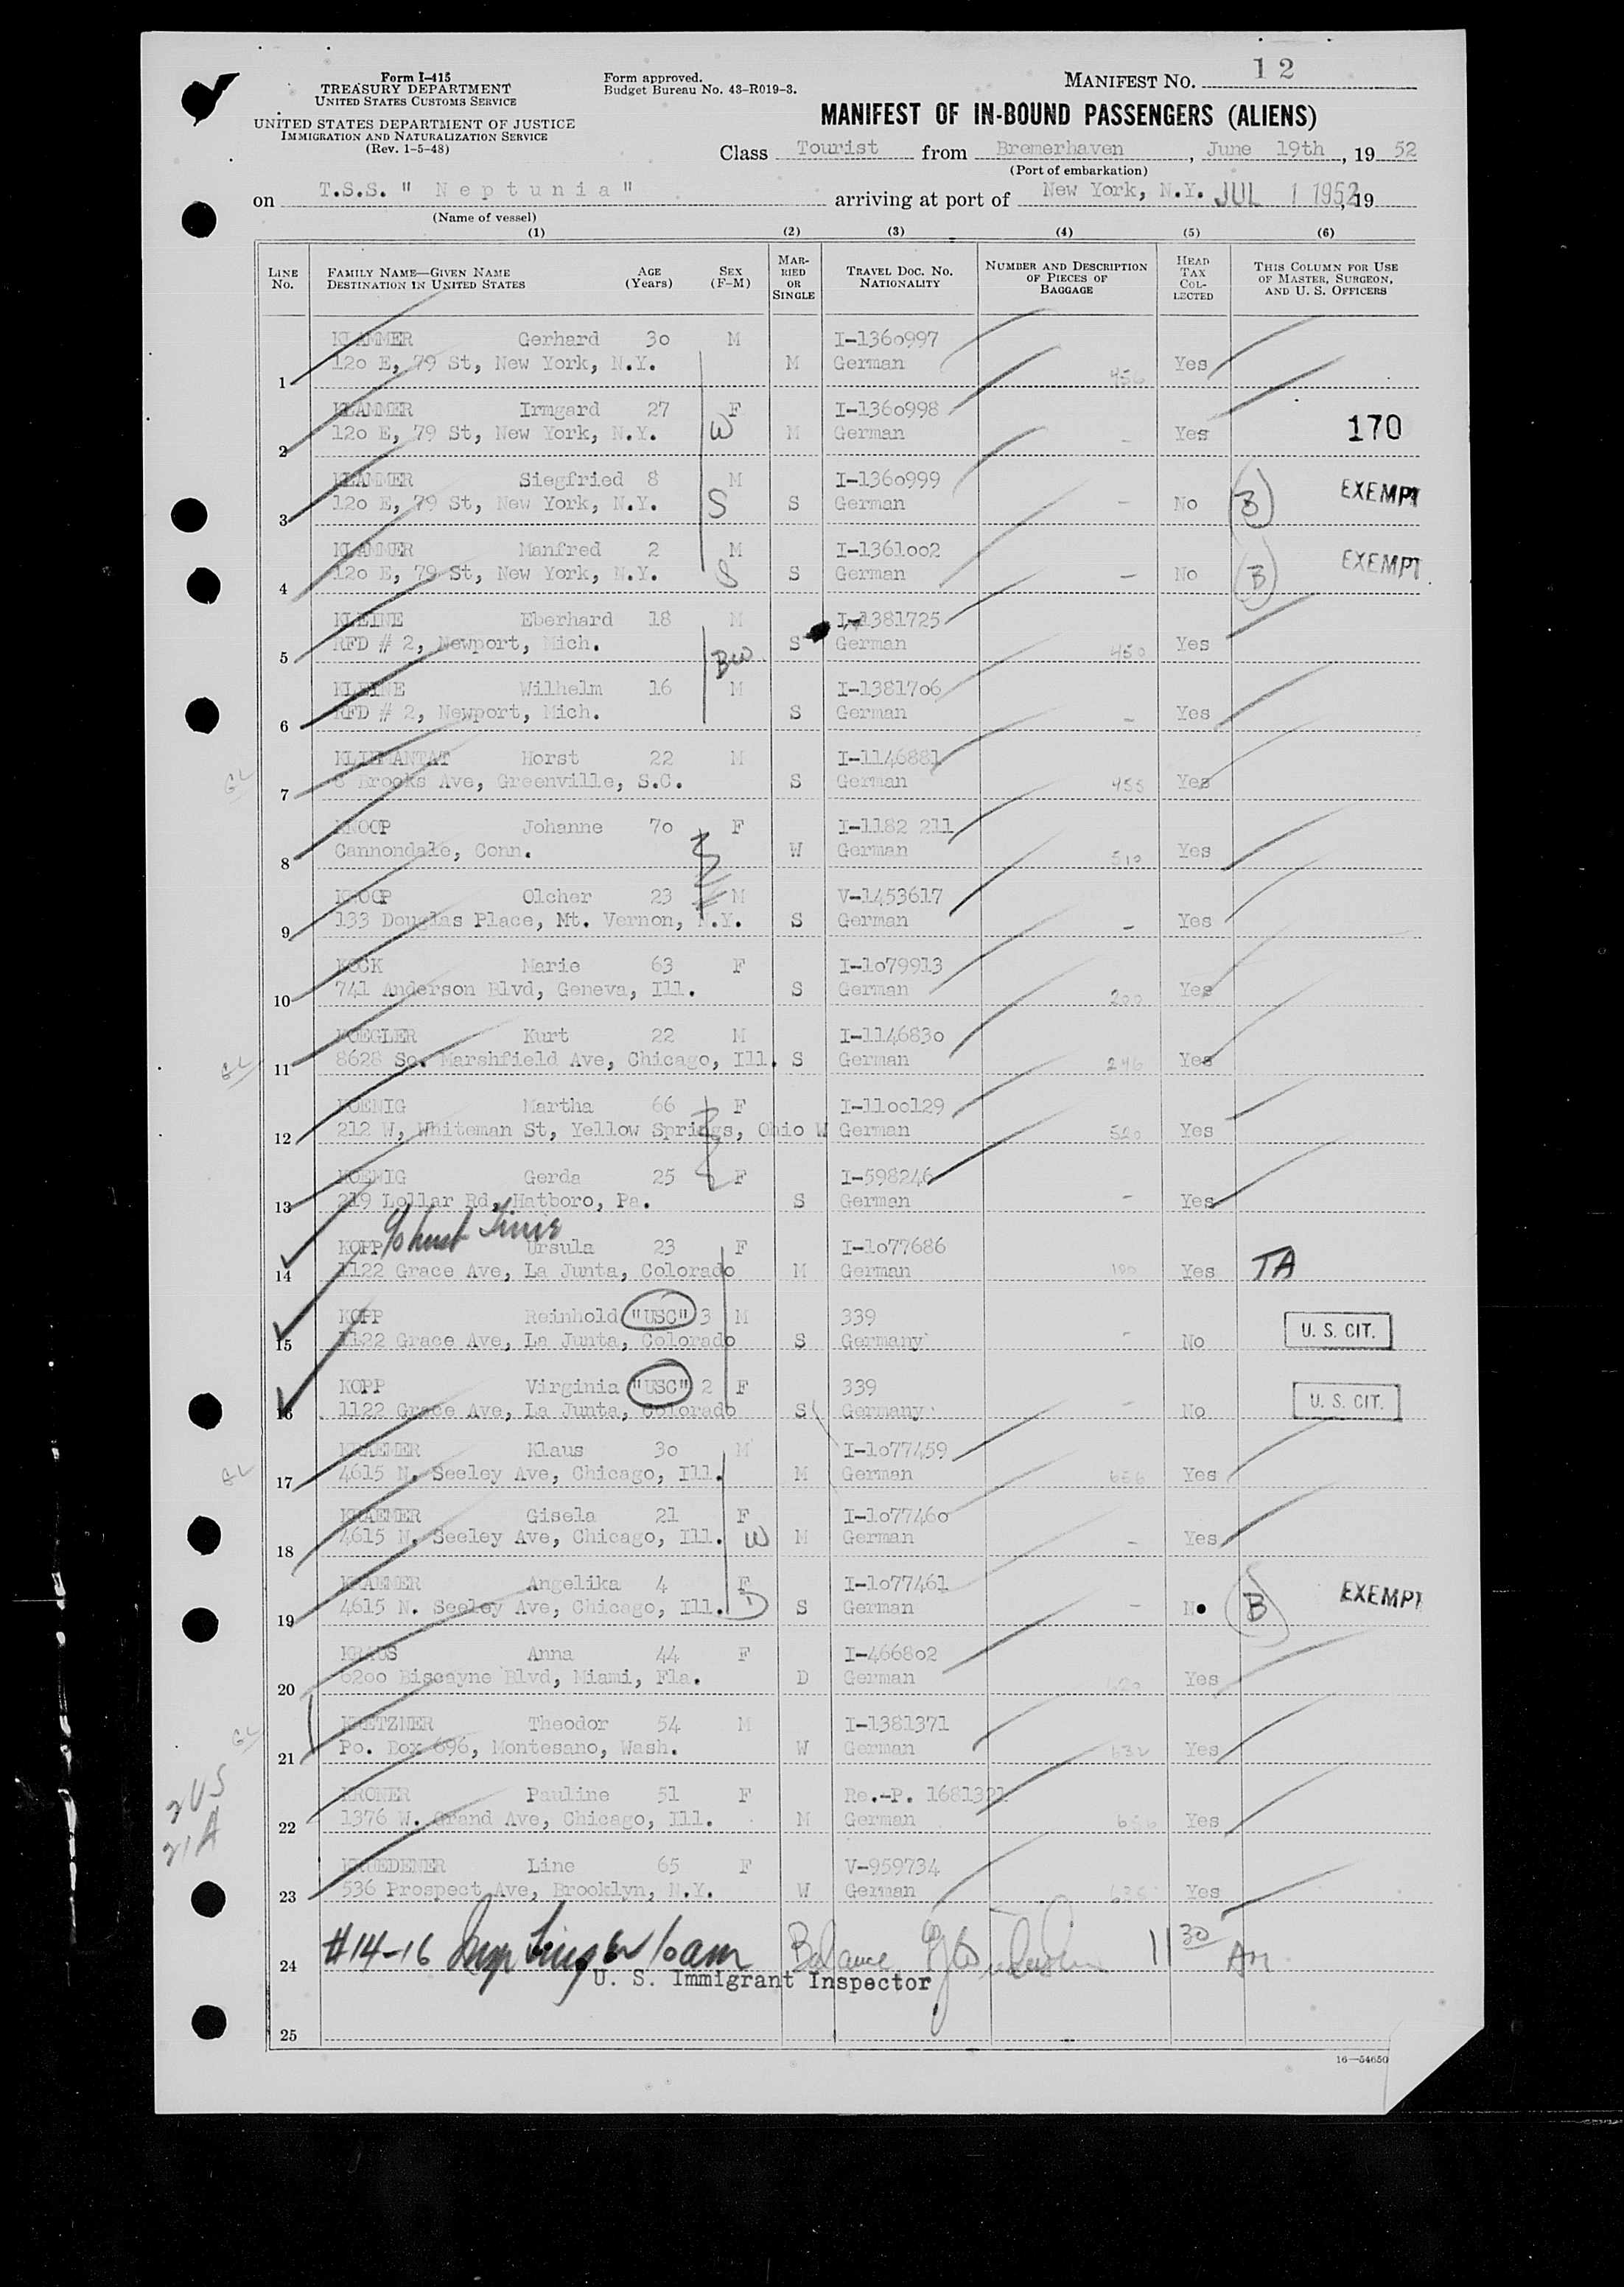 Form I-415
TREASURY DEPARTMENT
UNITED STATES CUSTOMS SERVICE
UNITED STATES DEPARTMENT OF JUSTICE
IMMIGRATION AND NATURALIZATION SERVICE
(Rev. 1-5-48)
Form approved.
Budget Bureau No. 43-R019-3.
MANIFEST NO. 12
MANIFEST OF IN-BOUND PASSENGERS (ALIENS)
Class Tourist from Bremerhaven, June 19th, 1952
(Port of embarkation)
on T.S.S. " Neptunia " arriving at port of New York, N.Y. JUL 1 1952, 19
(Name of vessel)
(1) (2) (3) (4) (5) (6)
LINE NO. FAMILY NAME—GIVEN NAME DESTINATION IN UNITED STATES AGE (Years) SEX (F-M) MARRIED OR SINGLE TRAVEL DOC. NO. NATIONALITY NUMBER AND DESCRIPTION OF PIECES OF BAGGAGE HEAD TAX COLLECTED THIS COLUMN FOR USE OF MASTER, SURGEON, AND U. S. OFFICERS
KLAMMER Gerhard 30 M I-1360997
1 120 E, 79 St, New York, N.Y. M German Yes
KLAMMER Irmgard 27 F I-1360998
2 120 E, 79 St, New York, N.Y. W M German - Yes 170
KLAMMER Siegfried 8 M I-1360999
3 120 E, 79 St, New York, N.Y. S S German - No B EXEMPT
KLAMMER Manfred 2 M I-1361002
4 120 E, 79 St, New York, N.Y. S S German - No B EXEMPT
KLEINE Eberhard 18 M I-1381725
5 RFD # 2, Newport, Mich. S German 450 Yes
KLEINE Wilhelm 16 M I-1381706
6 RFD # 2, Newport, Mich. S German - Yes
Horst 22 M I-1146881
7 8 Brooks Ave, Greenville, S.C. S German 455 Yes
KNOOP Johanne 70 F I-1182 211
8 Cannondale, Conn. W German 510 Yes
KNOOP Olcher 23 M V-1453617
9 133 Douglas Place, Mt. Vernon, N.Y. S German - Yes
KOCK Marie 63 F I-1079913
10 741 Anderson Blvd, Geneva, Ill. S German 200 Yes
KOEGLER Kurt 22 M I-1146830
11 8628 So. Marshfield Ave, Chicago, Ill. S German 246 Yes
KOENIG Martha 66 F I-1100129
12 212 W, Whiteman St, Yellow Springs, Ohio W German 520 Yes
KOENIG Gerda 25 F I-598246
13 219 Lollar Rd, Hatboro, Pa. S German - Yes
KOPP Ursula 23 F I-1077686
14 1122 Grace Ave, La Junta, Colorado M German Yes TA
KOPP Reinhold "USC" 3 M 339
15 1122 Grace Ave, La Junta, Colorado S Germany - No U. S. CIT.
KOPP Virginia "USC" 2 F 339
16 1122 Grace Ave, La Junta, Colorado S Germany - No U. S. CIT.
KRAEMER Klaus 30 M I-1077459
17 4615 N. Seeley Ave, Chicago, Ill. M German 656 Yes
KRAEMER Gisela 21 F I-1077460
18 4615 N. Seeley Ave, Chicago, Ill. W M German - Yes
KRAEMER Angelika 4 F I-1077461
19 4615 N. Seeley Ave, Chicago, Ill. D S German - No B EXEMPT
KRAUS Anna 44 F I-466802
20 6200 Biscayne Blvd, Miami, Fla. D German Yes
KRETZNER Theodor 54 M I-1381371
21 Po. Box 696, Montesano, Wash. W German 632 Yes
KRONER Pauline 51 F Re.-P. 1681321
22 1376 W. Grand Ave, Chicago, Ill. M German Yes
KRUEDENER Line 65 F V-959734
23 536 Prospect Ave, Brooklyn, N.Y. W German Yes
2 US
21 A
24 #14-16 10 am Balance 11 30 AM
U. S. Immigrant Inspector
25
16—54650